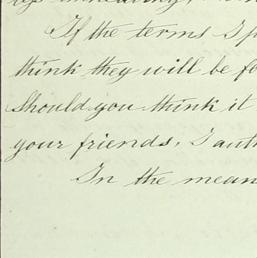 If the terms I p
think they will be fo
Should you think it
your friends, I auth
In the mean